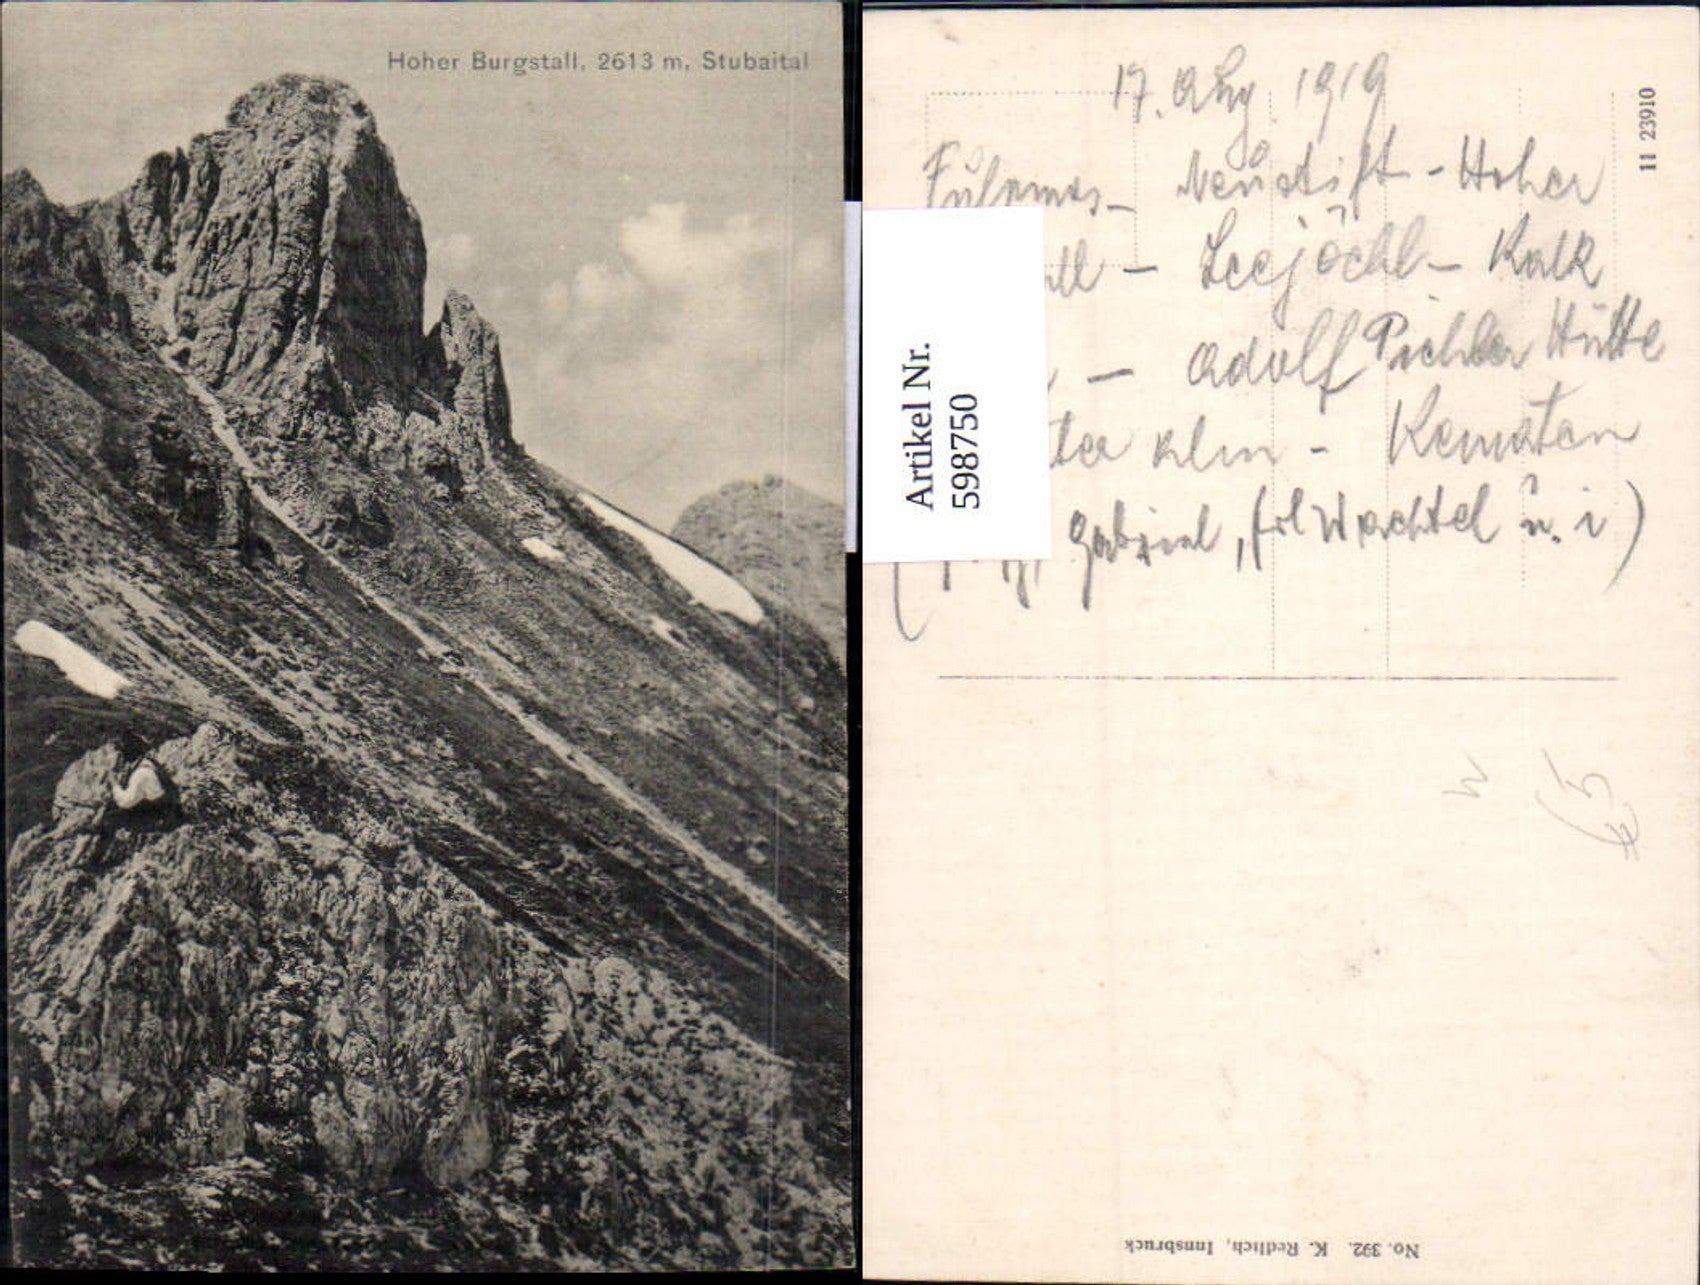 Hoher Burgstall, 2613 m, Stubaital
17. Aug 1919
Fulpmes - Neustift - Hoher
ll - Seejöchl - Kalk
- Adolf Pichler Hütte
ter Alm - Kematen
( Gabriel, Frl Wachtel u. i )
Artikel Nr.
598750
11 23910
No. 392. K. Redlich, Innsbruck